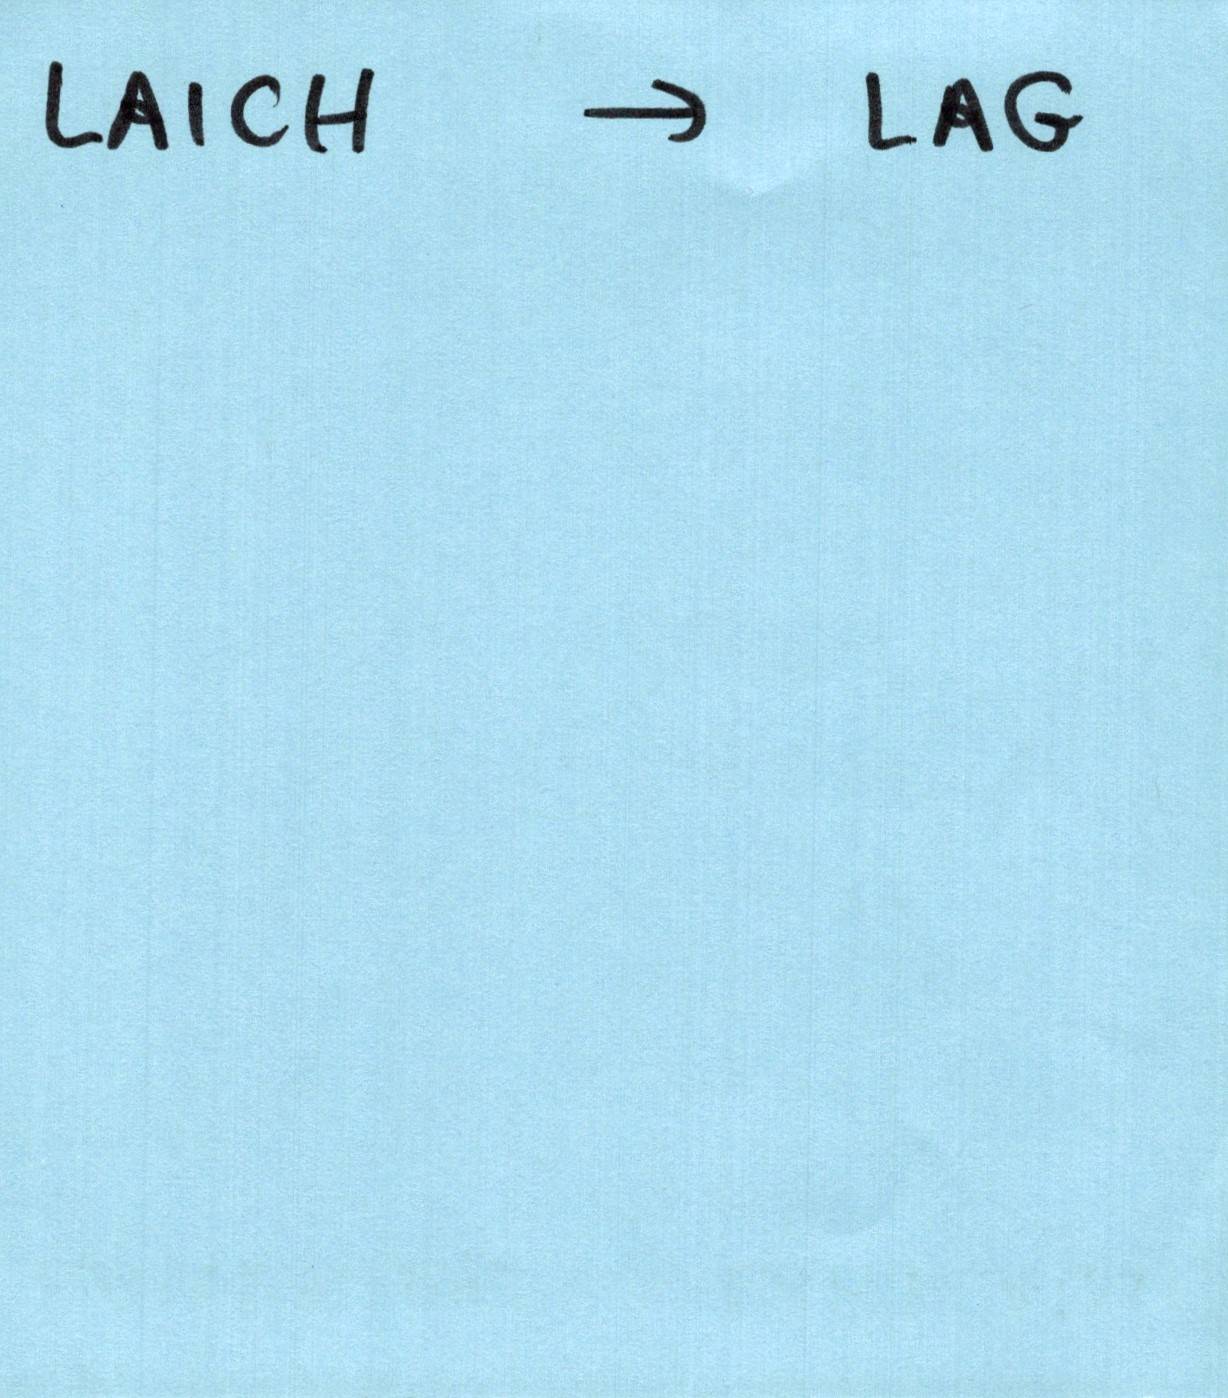 LAICH → LAG